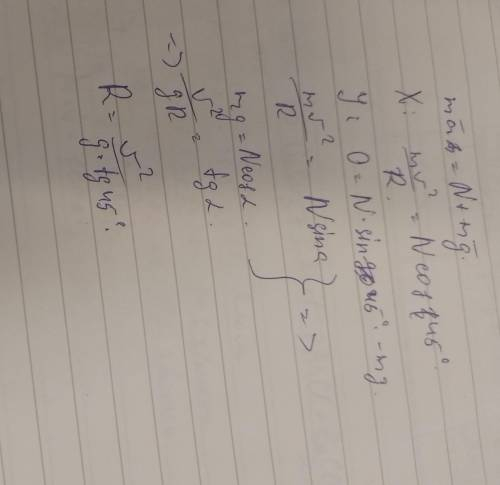 mā = N̄ + mḡ.
X: mv²/R = N cos 45°
y: 0 = N · sin 45° - mg.
mv²/R = N sin α } =>
mg = N cos α.
=> v²/gR = tg α.
R = v²/g · tg 45°.